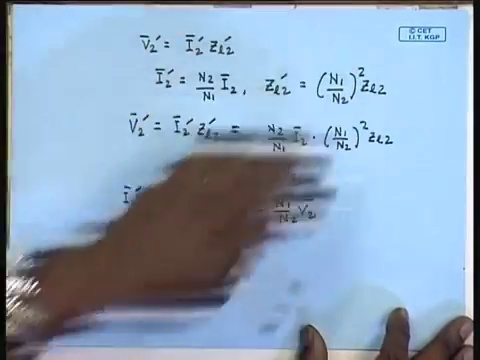 © CET
I.I.T. KGP
V̄₂′ = Ī₂′ Z_l2′
Ī₂′ = N₂/N₁ Ī₂ , Z_l2′ = (N₁/N₂)² Z_l2
V̄₂′ = Ī₂′ Z_l2′ = N₂/N₁ Ī₂ · (N₁/N₂)² Z_l2
N₁/N₂ V̄₂